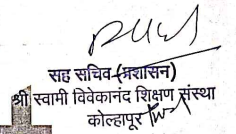 सह सचिव (प्रशासन)
श्री स्वामी विवेकानंद शिक्षण संस्था
कोल्हापूर